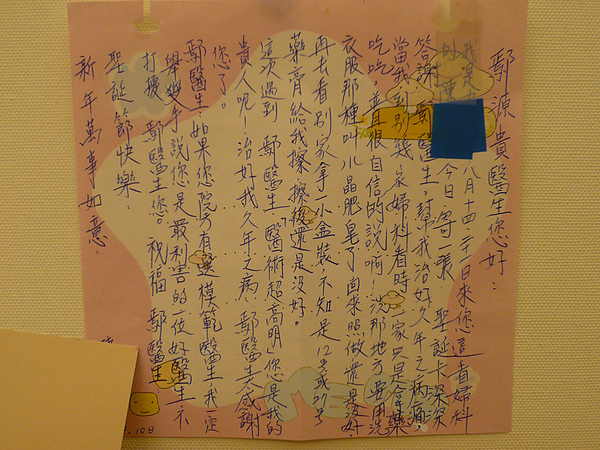 鄢源貴醫生您好：
我葉
的

八月十四、二十一日來您這看婦科
今日寄一張 聖誕卡深深
答謝 鄢醫生，幫我治好久年之病痛，
當我到別幾家婦科看時，一家只是拿藥
吃吃，並且很自信的說啊！洗那地方要用洗
衣服那種叫水晶肥皂了回來照做還是沒好，
再去看別家拿一小盒裝，不知是12號或27号
藥膏給我擦，擦後還是沒好。
這次遇到 鄢醫生「醫術超高明」您是我的
貴人呢！治好我久年之病，鄢醫生太感謝
您了。
鄢醫生：如果您院方有選模範醫生我一定
舉雙手說您是最利害的一位好醫生，不
打擾 鄢醫生您。祝福 鄢醫生
聖誕節快樂：
新年萬事如意。
10日